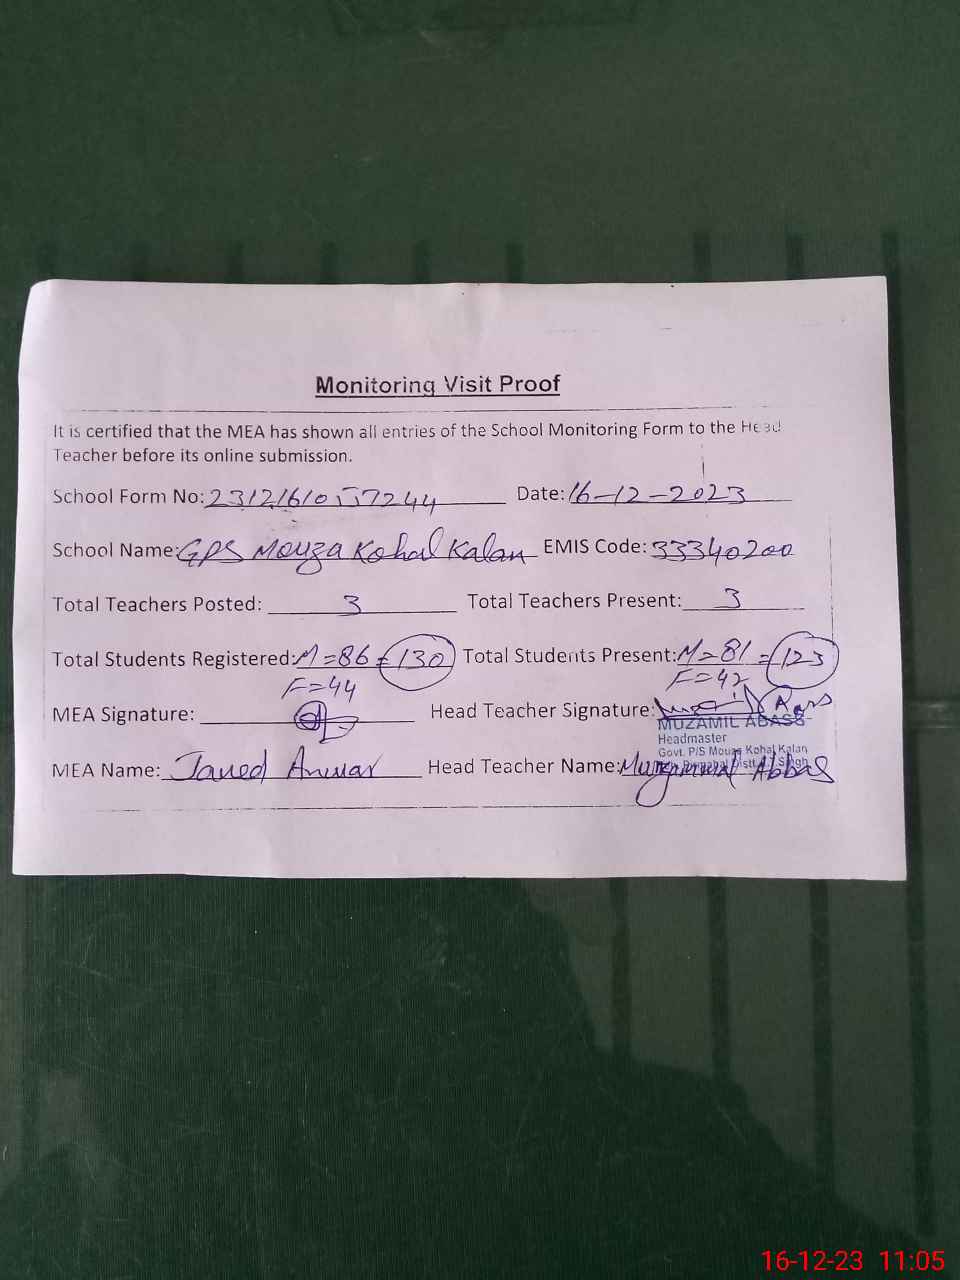 Monitoring Visit Proof
It is certified that the MEA has shown all entries of the School Monitoring Form to the Head
Teacher before its online submission.
School Form No: 23121610557244 Date: 16-12-2023
School Name: GPS Mouza Kohal Kalan EMIS Code: 33340200
Total Teachers Posted: 3 Total Teachers Present: 3
Total Students Registered: M=86 = 130 Total Students Present: M=81 = 123
F=44 F=42
MEA Signature: Head Teacher Signature:
MUZAMIL ABASS
Headmaster
Govt. P/S Mouza Kohal Kalan
MEA Name: Javed Anwar Head Teacher Name: Muzammal Abbas
16-12-23 11:05